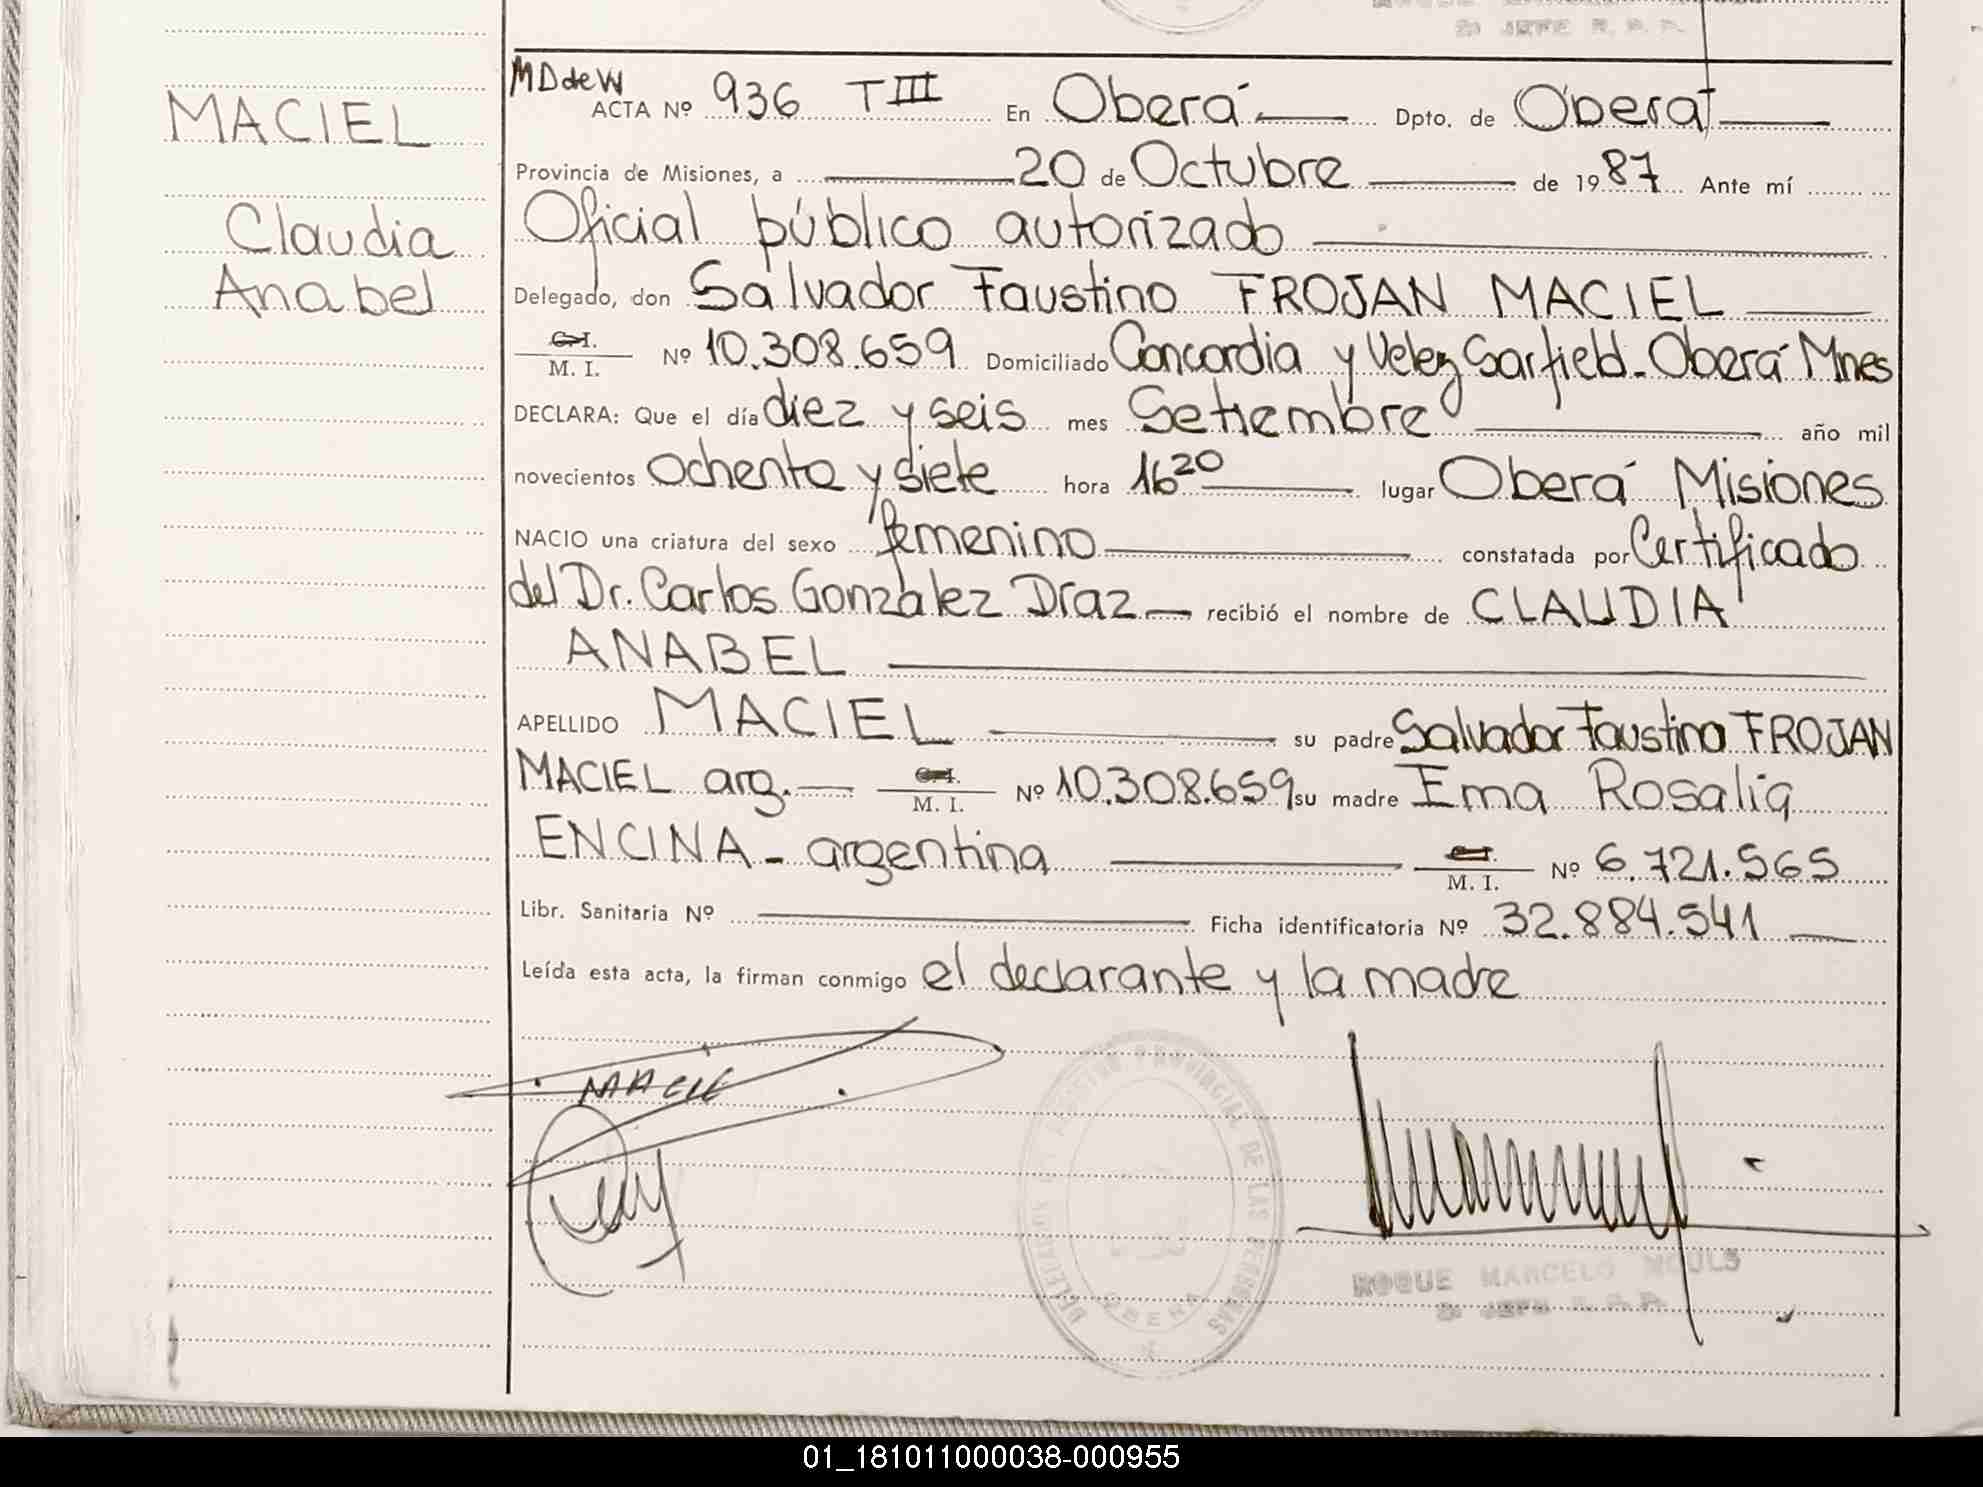 2o JEFE R. P. P.
MACIEL
Claudia
Anabel
MD de W
ACTA Nº 936 T III En Oberá Dpto. de Oberá
Provincia de Misiones, a 20 de Octubre de 1987 Ante mí
Oficial público autorizado
Delegado, don Salvador Faustino FROJAN MACIEL
C.I.
M. I. Nº 10.308.659 Domiciliado Concordia y Velez Sarfield - Oberá Mnes
DECLARA: Que el día diez y seis mes Setiembre año mil
novecientos ochenta y siete hora 16 20 lugar Oberá Misiones
NACIO una criatura del sexo femenino constatada por Certificado
del Dr. Carlos Gonzalez Díaz recibió el nombre de CLAUDIA
ANABEL
APELLIDO MACIEL su padre Salvador Faustino FROJAN
MACIEL arg. C.I. M. I. Nº 10.308.659 su madre Ema Rosalia
ENCINA - argentina C.I. M. I. Nº 6.721.565
Libr. Sanitaria Nº Ficha identificatoria Nº 32.884.541
Leída esta acta, la firman conmigo el declarante y la madre
MACIE
PROVINCIAL DE LAS PERSONAS
OBERA
ROQUE MARCELO MOULS
01_181011000038-000955